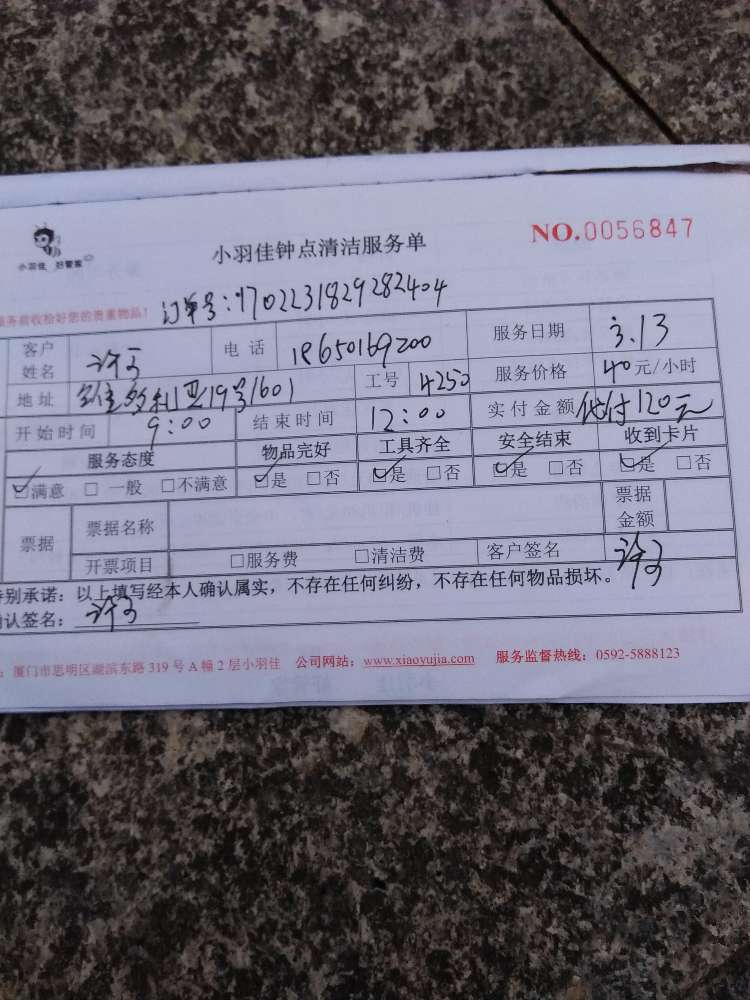 小羽佳 好管家
小羽佳钟点清洁服务单
NO.0056847
服务前收拾好您的贵重物品!
订单号:1702231829282404
客户姓名 许 电话 18650169200 服务日期 3.13
地址 19号1601 工号 4250 服务价格 40元/小时
开始时间 9:00 结束时间 12:00 实付金额 代付120元
服务态度 物品完好 工具齐全 安全结束 收到卡片
☑满意 □一般 □不满意 ☑是 □否 ☑是 □否 ☑是 □否 ☑是 □否
票据 票据名称 票据金额
开票项目 □服务费 □清洁费 客户签名 许
特别承诺:以上填写经本人确认属实,不存在任何纠纷,不存在任何物品损坏。
确认签名:许
:厦门市思明区湖滨东路319号A幢2层小羽佳 公司网站:www.xiaoyujia.com 服务监督热线:0592-5888123